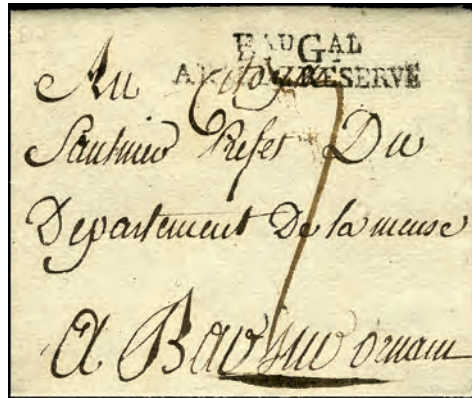 BAU GAL
AR RÉSERVE
Au Citoyen
Saulnier Préfet Du
Departement De la meuse
a Bar sur ornain
7